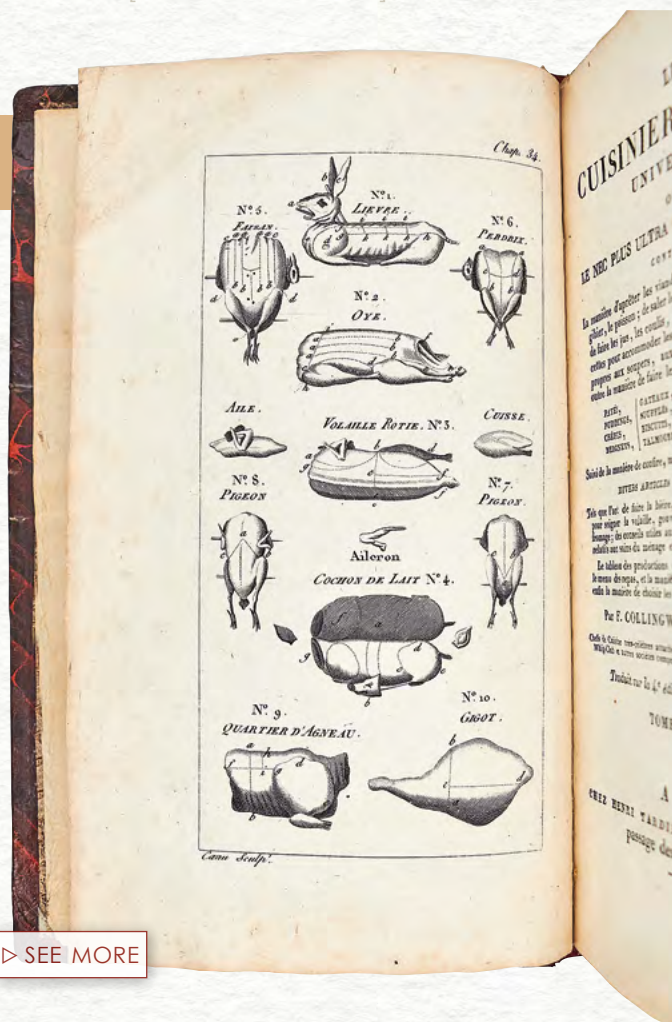 Chap. 34.
Nº 1.
LIEVRE.
Nº 5.
FAISAN.
Nº 6.
PERDRIX.
Nº 2.
OYE.
AILE.
VOLAILLE ROTIE. Nº 3.
CUISSE.
Nº 8.
PIGEON
Nº 7.
PIGEON.
Aileron
COCHON DE LAIT Nº 4.
Nº 9.
QUARTIER D'AGNEAU.
Nº 10.
GIGOT.
Sculpt.
CUISINIER
UNIVE
O
LE NEC PLUS ULTRA
CONT
La manière d'apprêter les vian
gibier, le poisson; de saler
de faire les jus, les coulis,
cettes pour accommoder les
propres aux soupers, au
outre la manière de faire le
PATÉ,
PUDDINGS,
CRÊMES,
BEIGNETS,
GATEAUX,
SOUFFLÉS
BISCUITS,
TALMOU
Suivi de la manière de confire,
DIVERS ARTICLES
Tels que l'art de faire la bière,
pour soigner la volaille, gouv
fromage; des conseils utiles au
relatifs aux soins du ménage
Le tableau des productions
le menu des repas, et la mani
enfin la manière de choisir les
Par F. COLLINGW
Traduit sur la 4e édi
TOME
A
CHEZ HENRI TARDI
passage de
▷ SEE MORE